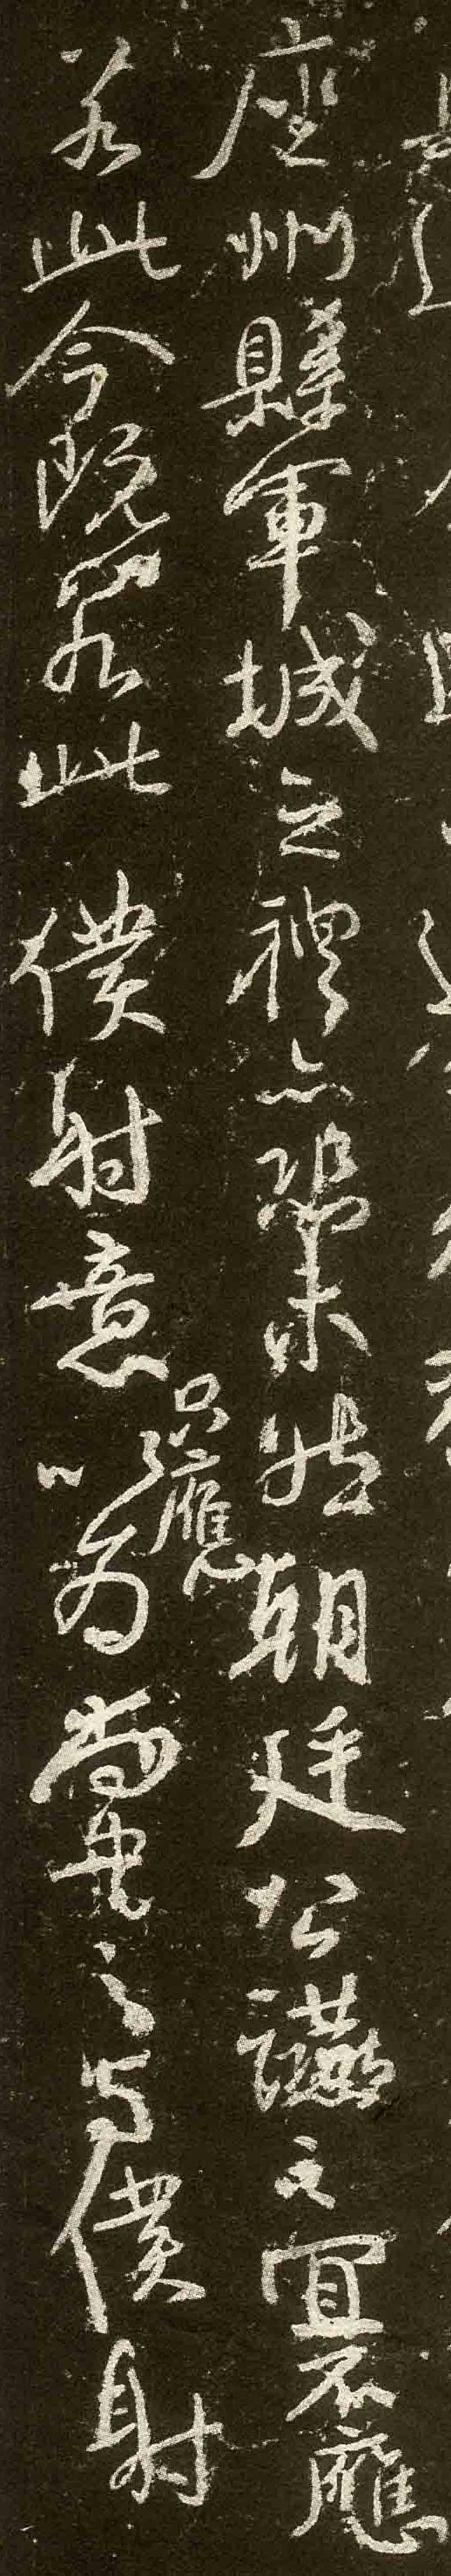 座州縣軍城之禮亦恐未然朝廷公讌之宜不應
若此今既若此僕射意只應以為尚書之與僕射